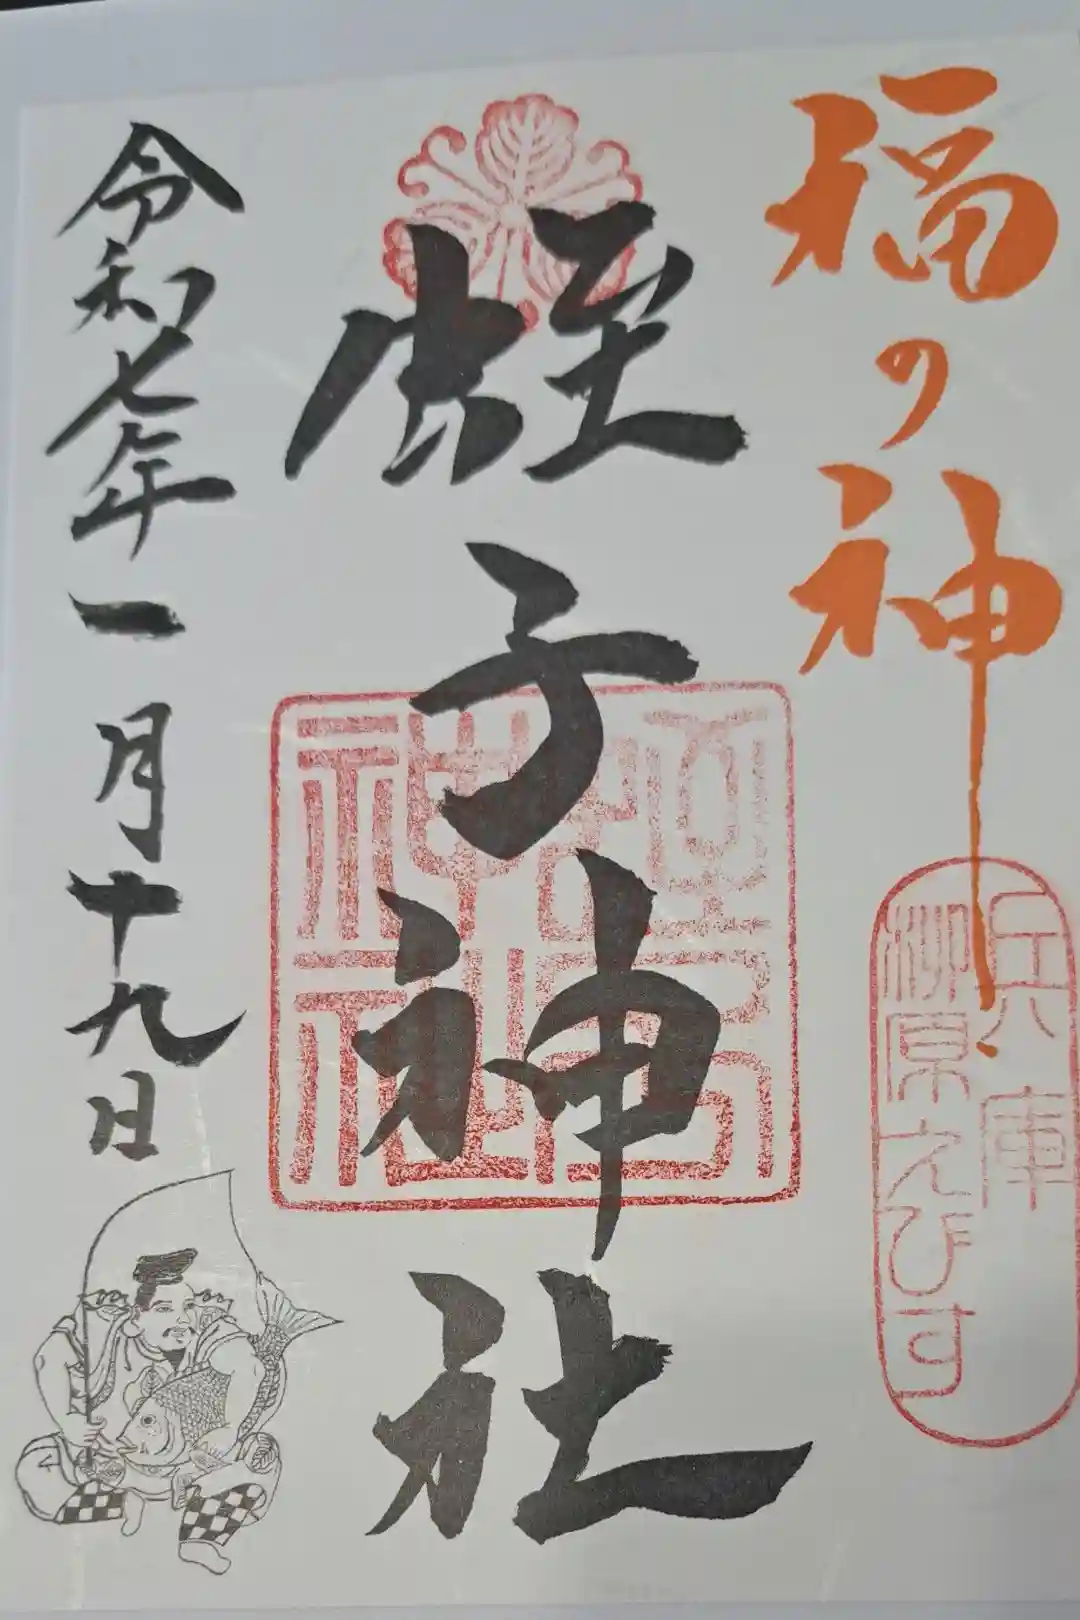 福の神
兵庫
柳原えびす
蛭子神社
蛭子神社
令和七年一月十九日